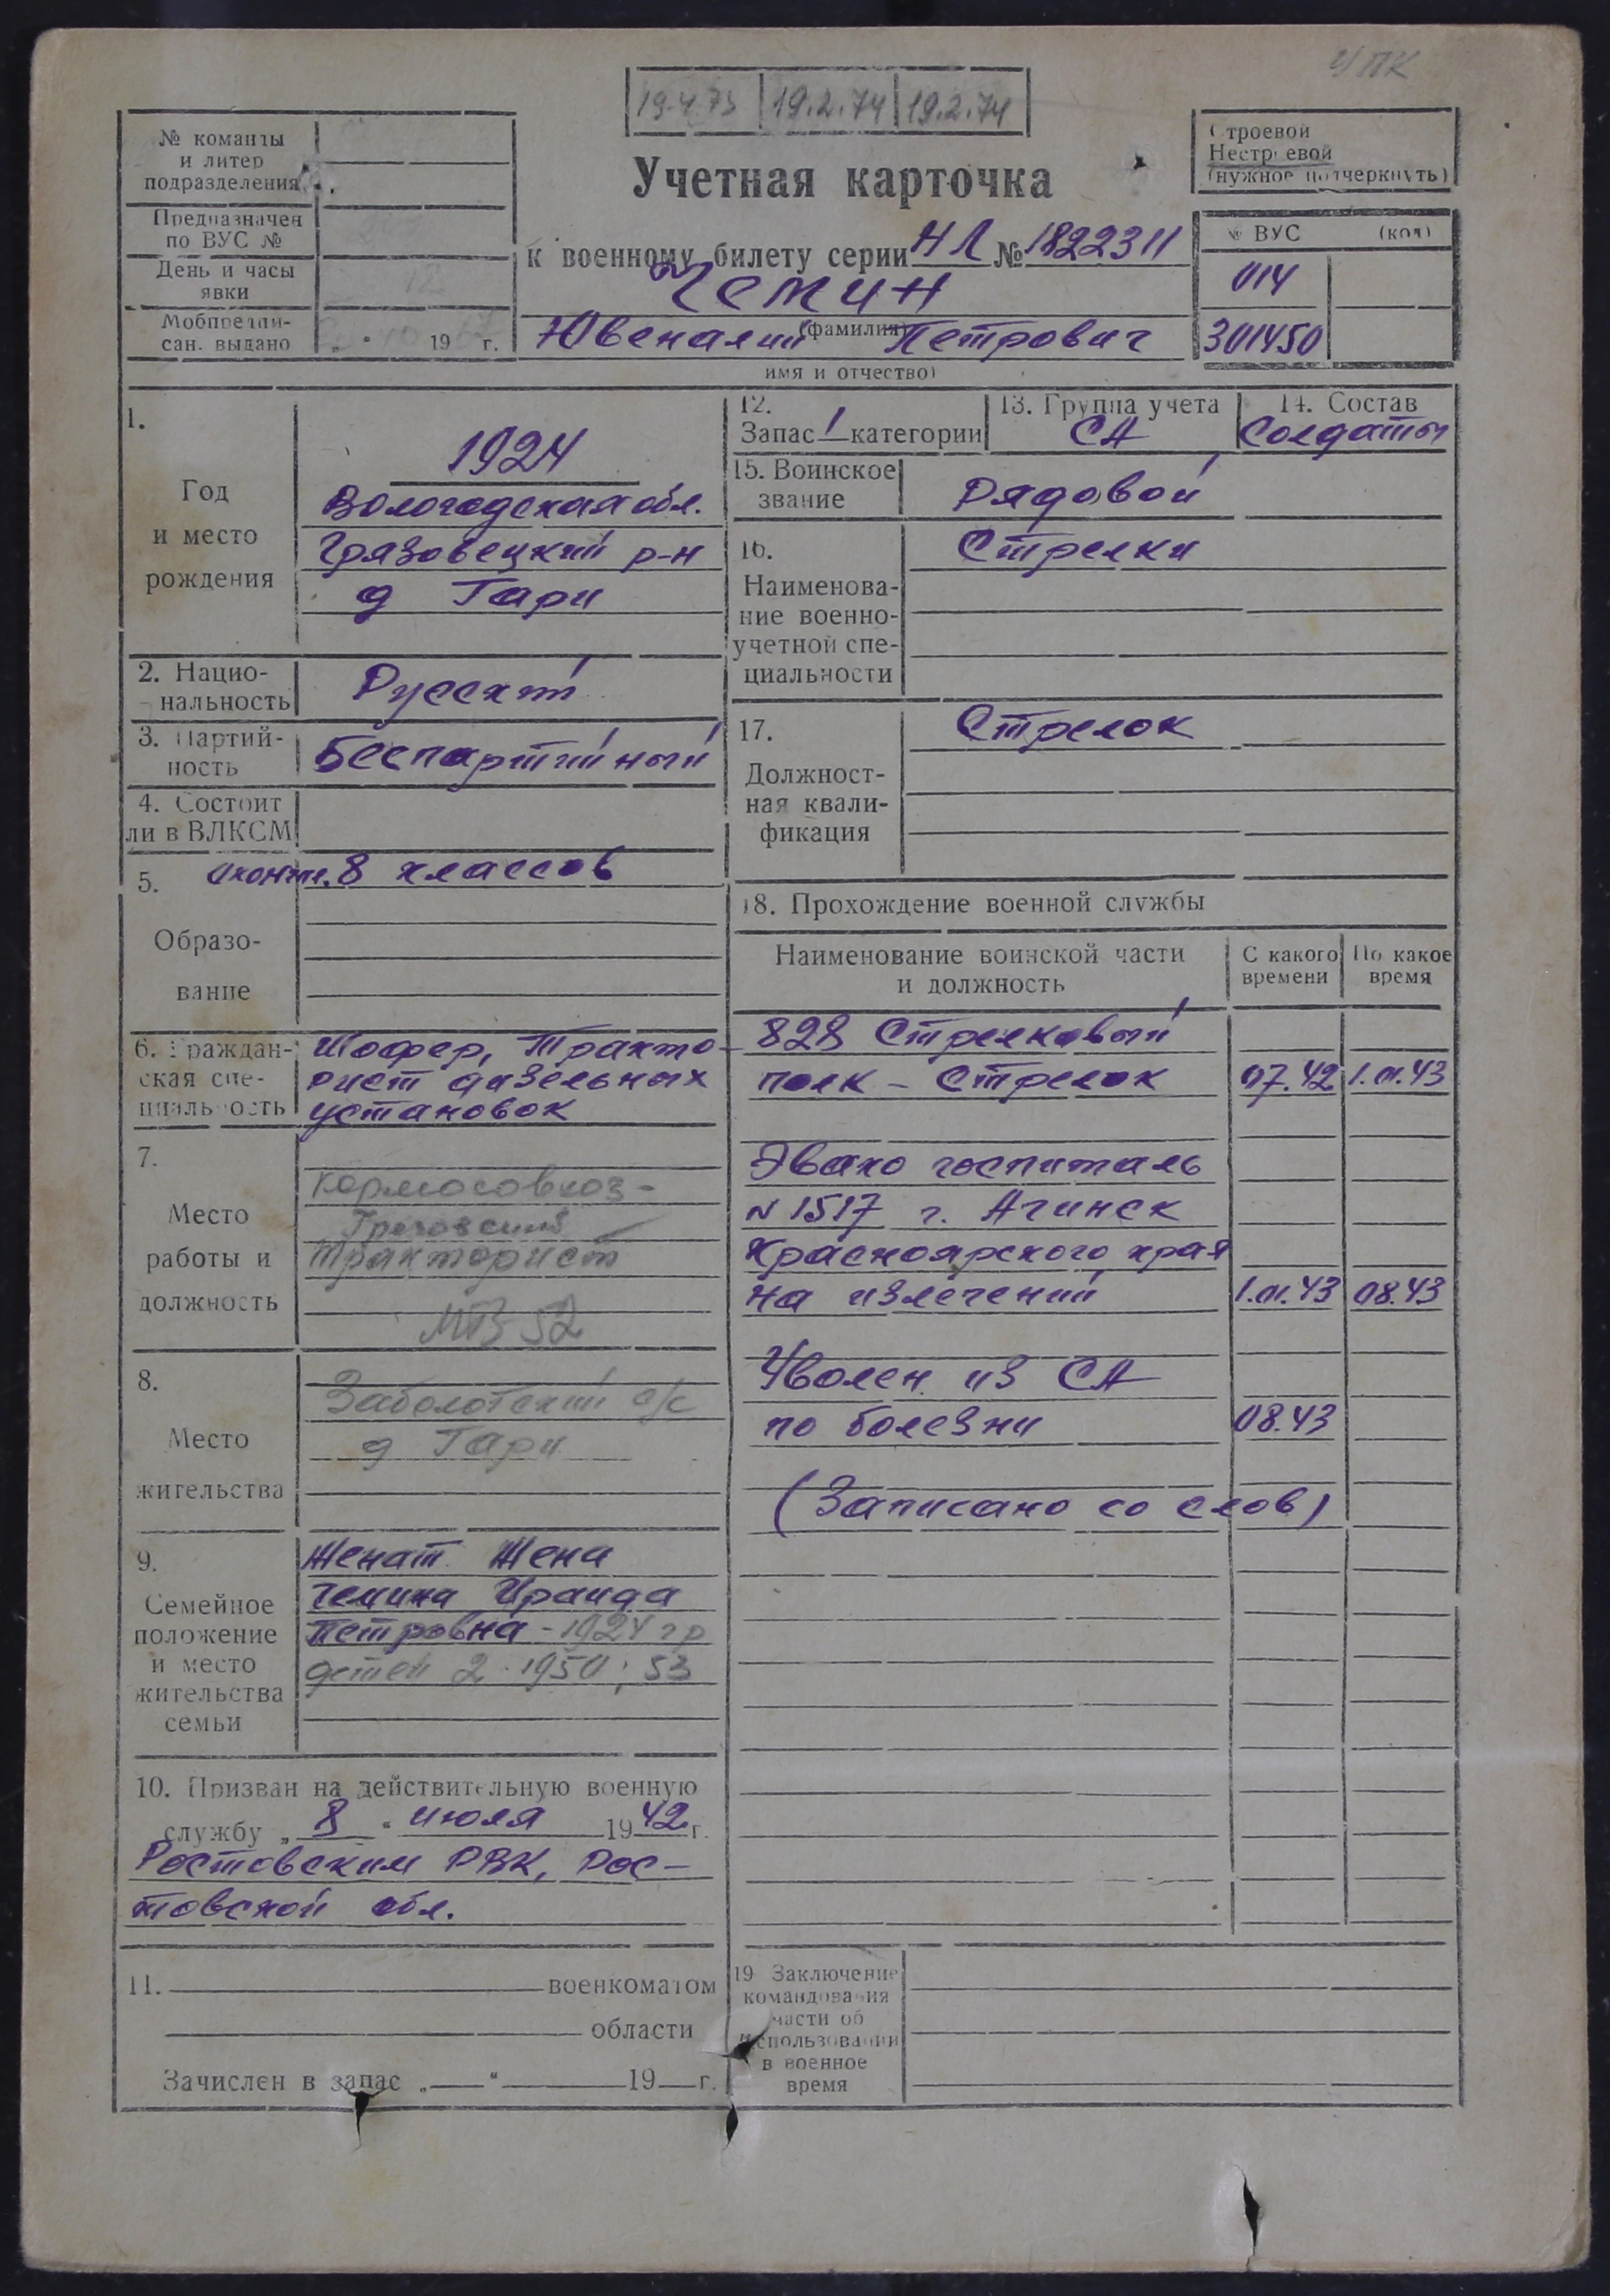 ч/ПК
19.4.73 19.2.74 19.2.74
№ команды
и литер
подразделения
Предназначен
по ВУС №
День и часы
явки
12
Мобпредпи-
сан. выдано „ “ 19 г.
Строевой
Нестроевой
(нужное подчеркнуть)
Учетная карточка
к военному билету серии НЛ № 1822311
Чемин
(фамилия)
Ювеналий Петрович
имя и отчество)
№ ВУС (код)
014
301450
1.
Год
и место
рождения
1924
Вологодская обл.
Грязовецкий р-н
д Гари
2. Нацио-
нальность
Русский
3. Партий-
ность
Беспартийный
4. Состоит
ли в ВЛКСМ
5. Окончил. 8 классов
Образо-
вание
6. Граждан-
ская спе-
циальность
Шофер, Тракто-
рист дизельных
установок
7.
Место
работы и
должность
Кормосовхоз-
тракторист
МТЗ 52
8.
Место
жительства
Заболотский с/с
д Гари
9.
Семейное
положение
и место
жительства
семьи
Женат Жена
Чемина Ираида
Петровна - 1924 гр
детей 2 - 1950; 53
10. Призван на действительную военную
службу „ 8 “ июля 1942 г.
Ростовским РВК, Рос-
товской обл.
11. военкоматом
области
Зачислен в запас „ “ 19 г.
12.
Запас 1 категории
13. Группа учета
СА
14. Состав
Солдаты
15. Воинское
звание
Рядовой
16.
Наименова-
ние военно-
учетной спе-
циальности
Стрелки
17.
Должност-
ная квали-
фикация
Стрелок
18. Прохождение военной службы
Наименование воинской части
и должность
С какого
времени
По какое
время
828 Стрелковый
полк - Стрелок 07.42 1.01.43
Эвако госпиталь
N 1517 г. Ачинск
Красноярского края
на излечений 1.01.43 08.43
Уволен из СА
по болезни 08.43
(Записано со слов)
19 Заключение
командования
части об
использовании
в военное
время